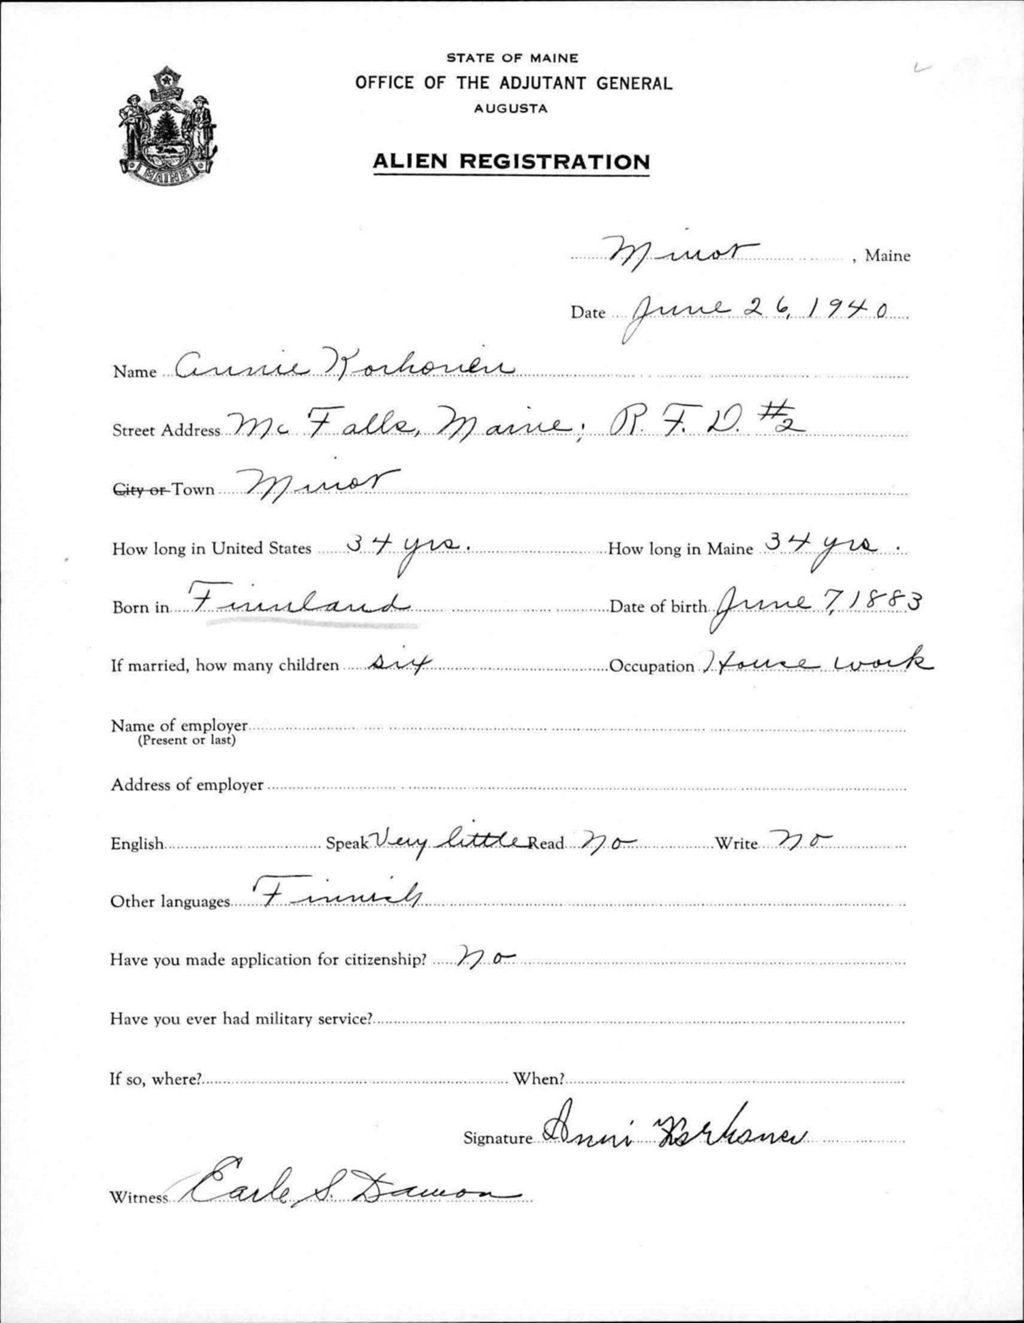 STATE OF MAINE
OFFICE OF THE ADJUTANT GENERAL
AUGUSTA
MAINE
ALIEN REGISTRATION
Minot, Maine
Date June 26, 1940
Name Annie Korhonen
Street Address Mc Falls, Maine; R. F. D. #2
City or Town Minot
How long in United States 34 yrs. How long in Maine 34 yrs.
Born in Finnland Date of birth June 7, 1883
If married, how many children six Occupation House work
Name of employer
(Present or last)
Address of employer
English Speak Very little Read No Write No
Other languages Finnish
Have you made application for citizenship? No
Have you ever had military service?
If so, where? When?
Signature Anni Korhonen
Witness Earle S. Dawson